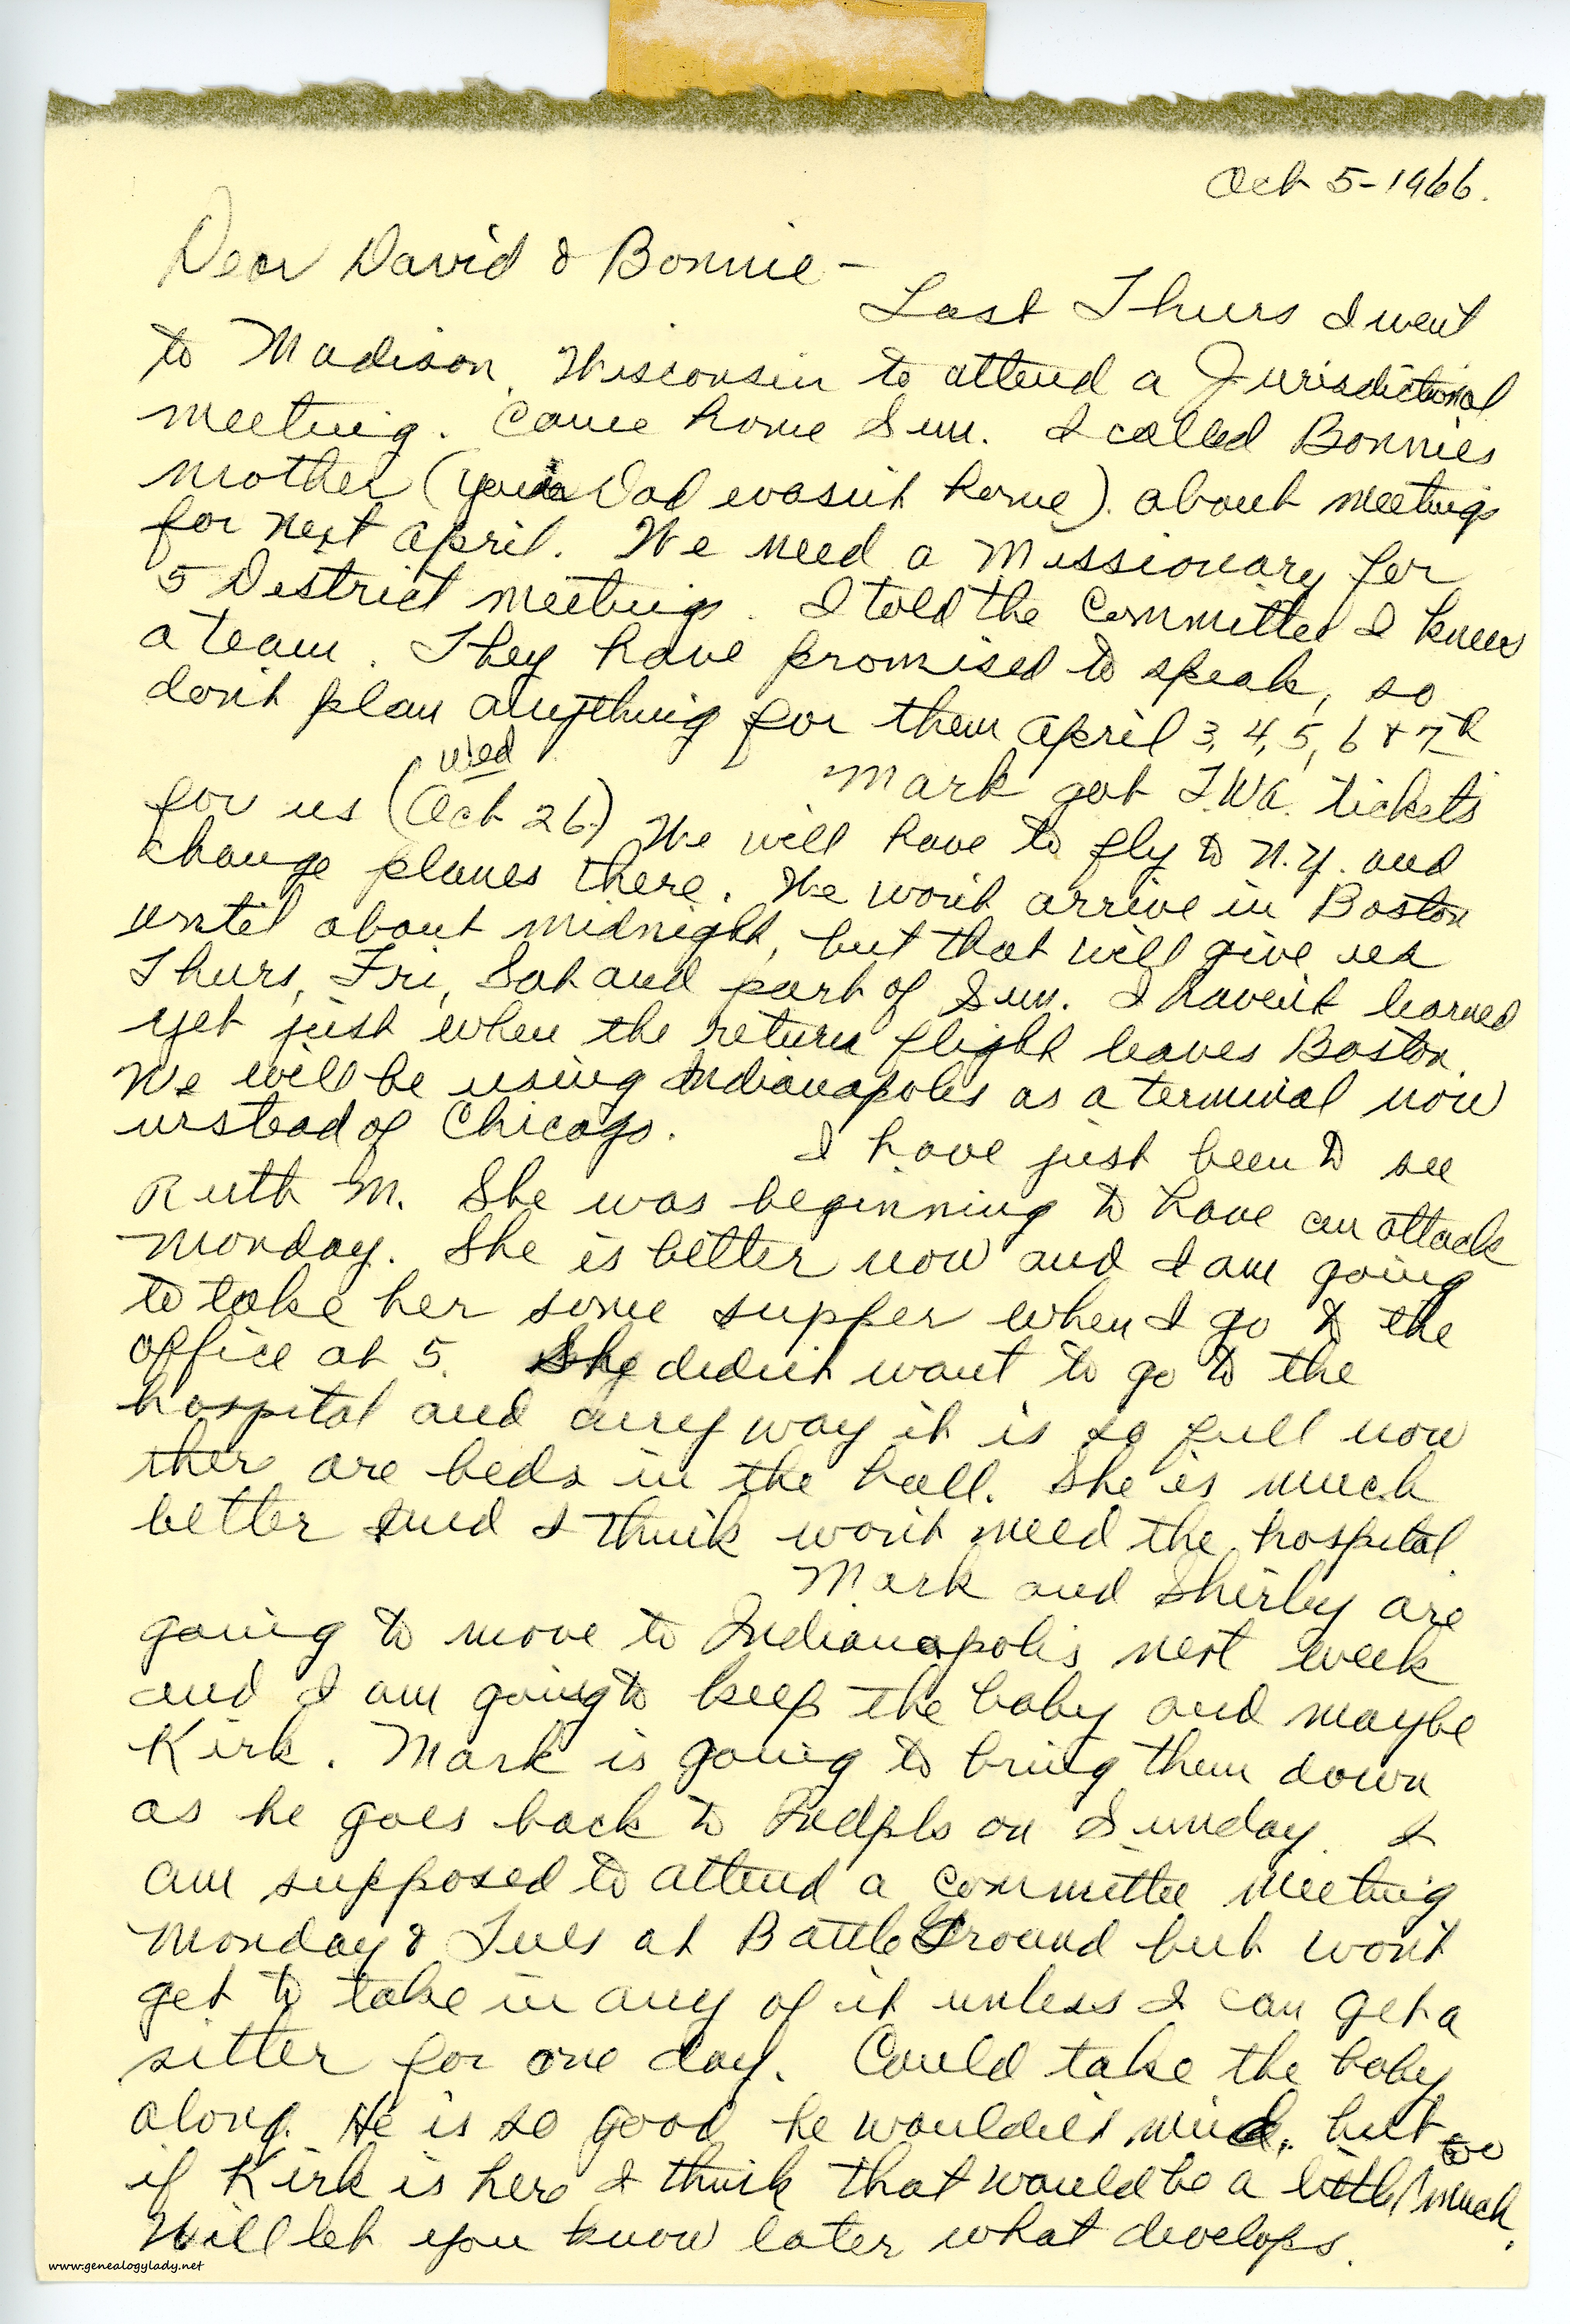 Oct 5-1966.
Dear David & Bonnie -
Last Thurs I went
to Madison, Wisconsin to attend a Jurisdictional
meeting. Came home Sun. I called Bonnies
mother (your Dad wasn't home). about meetings
for next April. We need a Missionary for
5 District meetings. I told the Committee I knew
a team. They have promised to speak, so
don't plan anything for them April 3, 4, 5, 6 & 7th
Mark got T.W.A. tickets
for us (Oct 26.) We will have to fly to N.Y. and
Wed
change planes there. We won't arrive in Boston
until about midnight, but that will give us
Thurs, Fri, Sat and part of Sun. I haven't learned
yet just when the return flight leaves Boston.
We will be using Indianapolis as a terminal now
instead of Chicago.
I have just been to see
Ruth M. She was beginning to have an attack
Monday. She is better now and I am going
to take her some supper when I go to the
office at 5. She didn't want to go to the
hospital and any way it is so full now
ther are beds in the hall. She is much
better and I think won't need the hospital
Mark and Shirley are
going to move to Indianapolis next week
and I am going to keep the baby and maybe
Kirk. Mark is going to bring them down
as he goes back to Indpls on Sunday. I
am supposed to attend a committee meeting
Monday & Tues at Battle Ground but won't
get to take in any of it unless I can get a
sitter for one day. Could take the baby
along. He is so good he wouldn't mind, but
if Kirk is here I think that would be a little too much.
Will let you know later what develops.
www.genealogylady.net